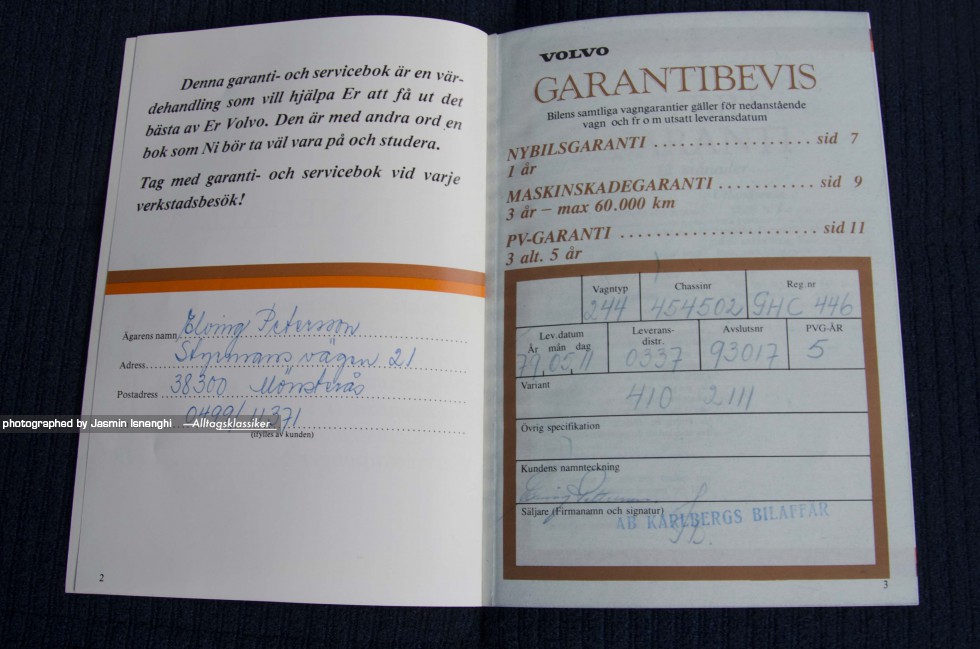 Denna garanti- och servicebok är en vär-
dehandling som vill hjälpa Er att få ut det
bästa av Er Volvo. Den är med andra ord en
bok som Ni bör ta väl vara på och studera.
Tag med garanti- och servicebok vid varje
verkstadsbesök!
Ägarens namn Elving Petersson
Adress Styrmansvägen 21
Postadress 38300 Mönsterås
0499/11371
(Ifylles av kunden)
2
VOLVO
GARANTIBEVIS
Bilens samtliga vagngarantier gäller för nedanstående
vagn och fr o m utsatt leveransdatum
NYBILSGARANTI .................. sid 7
1 år
MASKINSKADEGARANTI ........... sid 9
3 år – max 60.000 km
PV-GARANTI ...................... sid 11
3 alt. 5 år
Vagntyp Chassinr Reg.nr
244 454502 GHC 446
Lev.datum Leverans- Avslutsnr PVG-ÅR
År mån dag distr.
79,05,11 0337 93017 5
Variant
410 2111
Övrig specifikation
Kundens namnteckning
Säljare (Firmanamn och signatur)
AB KARLBERGS BILAFFÄR
3
photographed by Jasmin Isnenghi —Alltagsklassiker